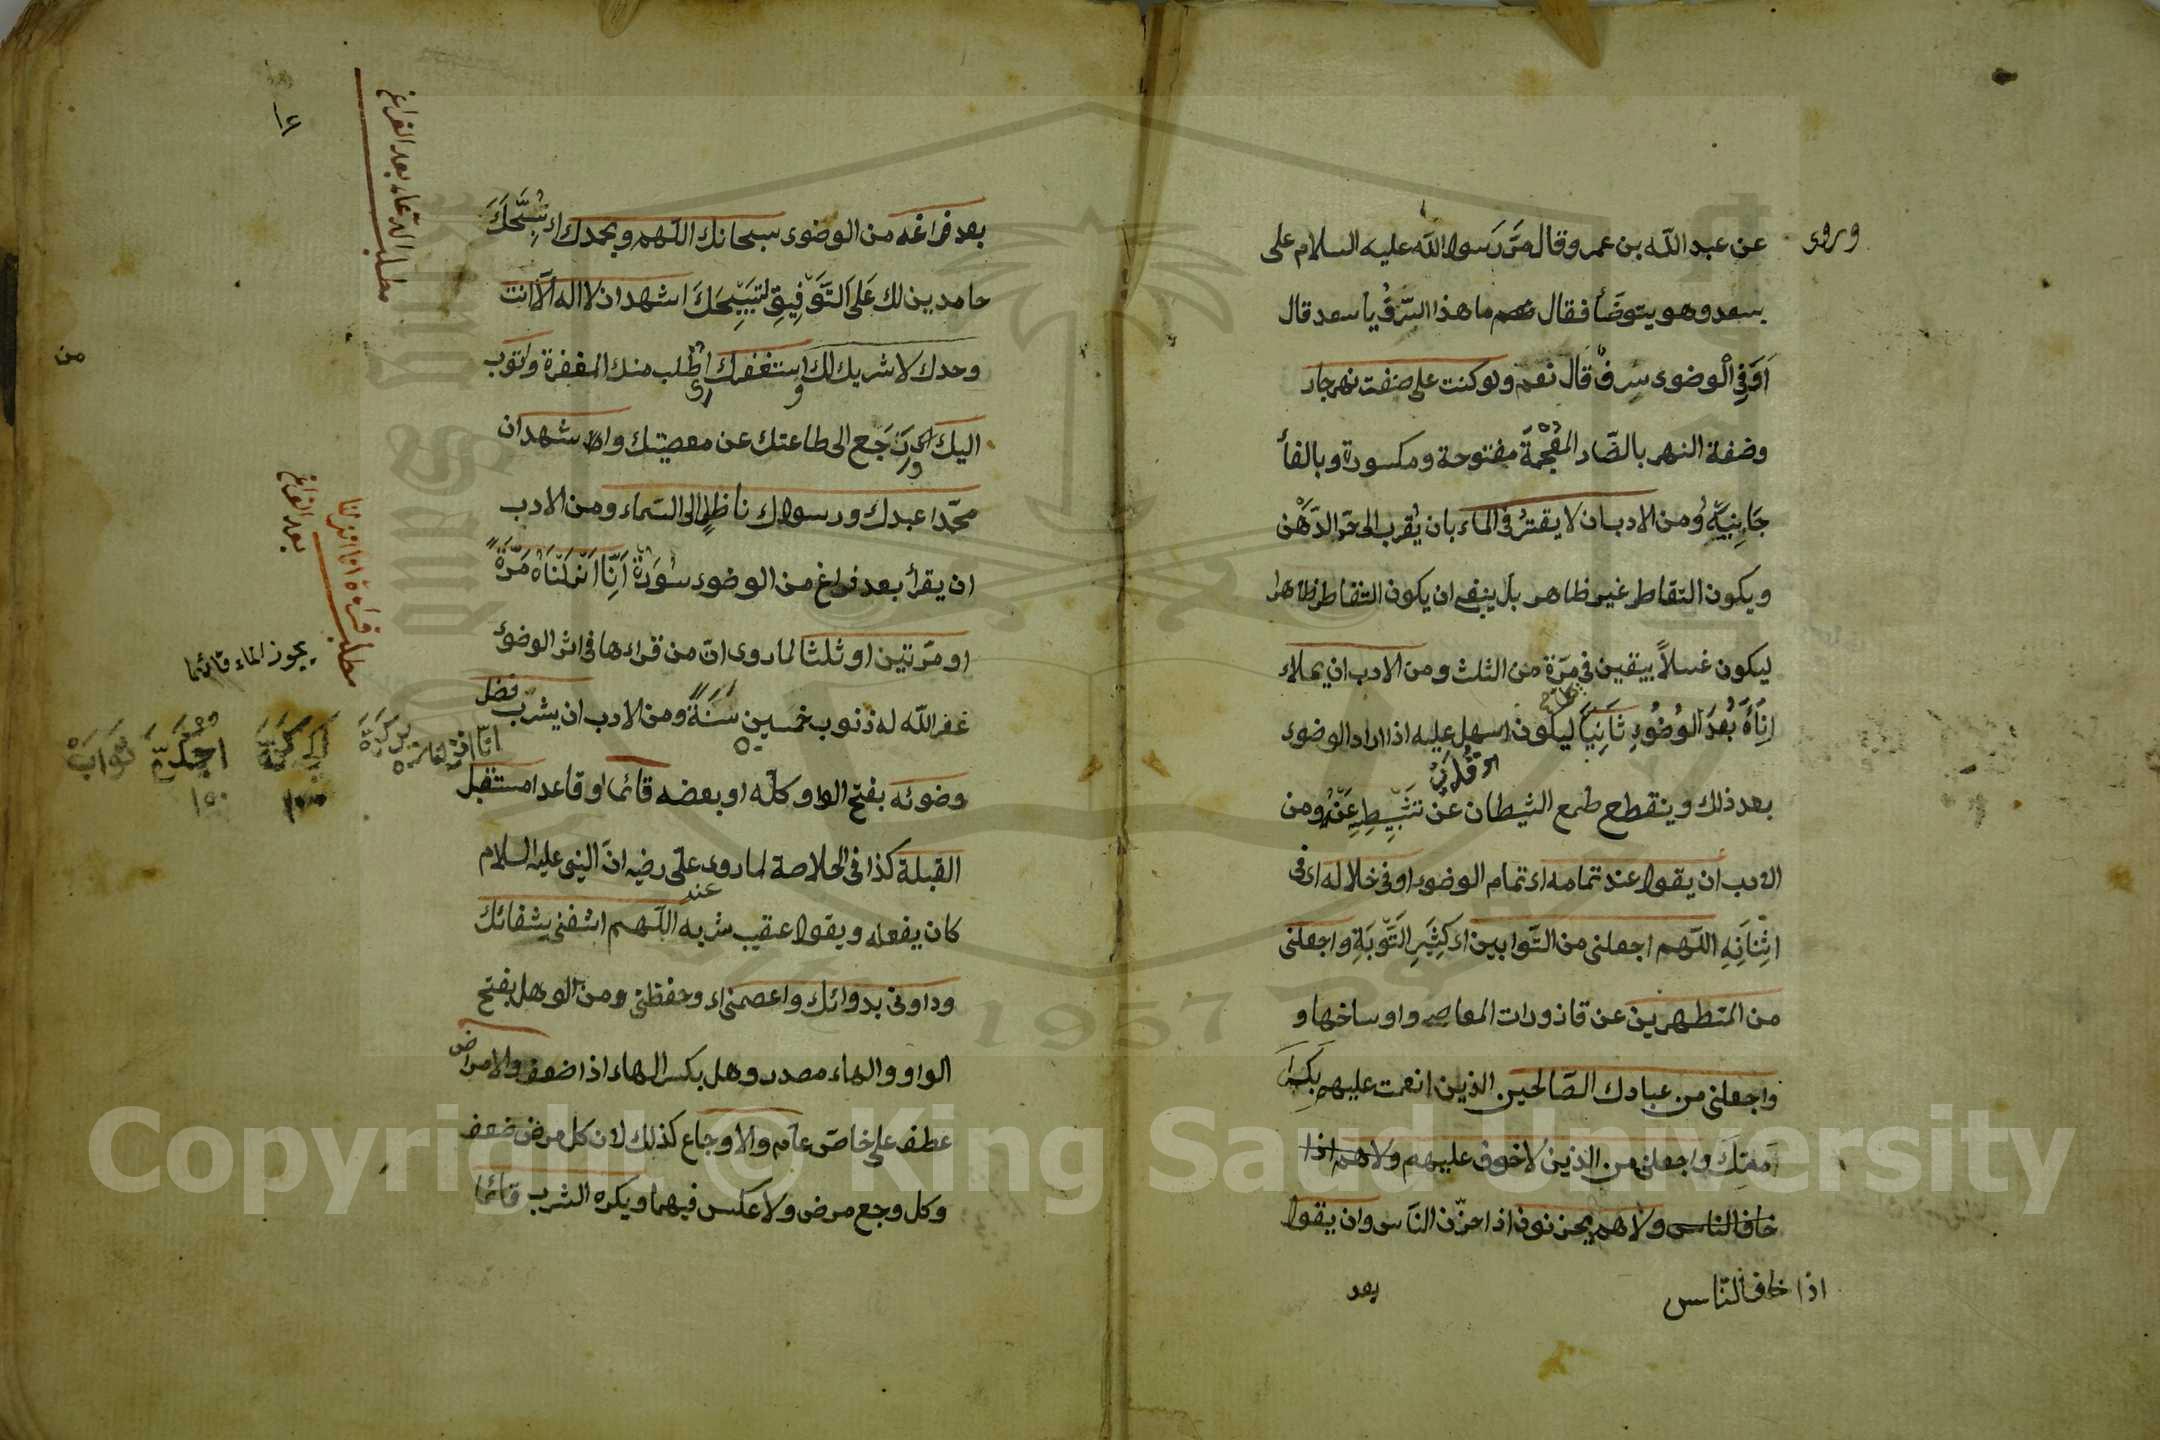 وروى
عن عبد الله بن عمر وقال مَرَّ رَسول الله عليه السلام على
بسعد وهو يتوضأ فقال ما هذا السَّرَفْ يا سعد قال
اَوَفِي الوضوء سرفْ قَالَ نعم ولو كنت على ضفت نهر جار
وضفة النهر بالضّاد المعُجَْمَة مفتوحة ومكسورة وبالفأ
جَانِبَيْهِ ومن الادب ان لا يقترُ في الماء بان يُقرب الى حَدّ الدَّهْن
ويكون التقاطر غير ظاهر بل ينبغي ان يكون التقاطر ظاهرا
ليكون غسلاً بيقين في مَرَّة من الثلث ومن الادب ان يملاء
اِنَاَءَهُ بُعَدَ الوُضُوءِ ثَانِيَاً ليكون اسهل عليه اذا اراد الوضوء
بعد ذلك وينقطع طمع الشيطان عن تَثَبِّيِطِهِ عَنْهُ ومن
الادب ان يقول عند تمامه اى تمام الوضوء او في خلاله اى في
اثِنَاَئِهِ اللّهم اجعلنى من التّوابين اى كَثِيَرِ التَّوْبَةِ واجعلنى
من المتطهرين عن قاذورات المعاصى واوساخها و
واجعلنى من عبادك الصّالحين الذين انعمت عليهم
واجعلنى من الذين لاخوف عليهم ولاهم اذا
خاف الناس ولاهم يحزنون اذا احزن النّاس وان يقول
اذا خاف النّاس
بعد
مطلب الدّعاء بعد الفراغ
بعد فراغه من الوضوء سبحانك اللّهم وبحمدك اى نُسَبِّحُكَ
حامدين لك عَلَى التَّوَفِيقِ لتَسَبِيْحِكَ اشهد ان لا اله الّا انت
وحدك لا شريك لك استغفرك اى اطلب منك المغفرة واتوب
اليك اى ارَجع الى طاعتك عن معصيتك واشهد ان
محمّدا عبدك ورسولك ناظرا الى السّماء ومن الادب
مطلب قراءة انا انزلنا
بعد الفراغ
ان يقرأ بعد فراغ من الوضوء سُوَرَةَ اَنِّا اَنْزَلْنَاَهُ مَرَّةً
او مرّتين او ثلثا لما روى انّ من قراءها في اثر الوضوءِ
يجوز الماء قائما
غفر الله له ذنوب خمسين سَنَةً ومن الادب ان يشرب فضل
وضوئه بفتح الواو كلّه او بعضه قائما او قاعدا مستقبل
القبلة كذا في الخلاصة لما روى عَلّى رضيه انّ النبى عليه السلام
كان يفعله ويقول عقيب شربه اللّهم اشفنى بشفائك
عند
وداونى بدوائك واعصمنى اى وحفظنى ومن الوهل بفتح
الواو والهاء مصدر وهل بكسر الهاء اذا ضعف والامراض
عطف على خاصّ عام والاوجاع كذلك لان كل مرض ضعف
وكل وجع مرض ولا عكس فيهما ويكره الشرب قائما
من
Copyright © King Saud University
1957